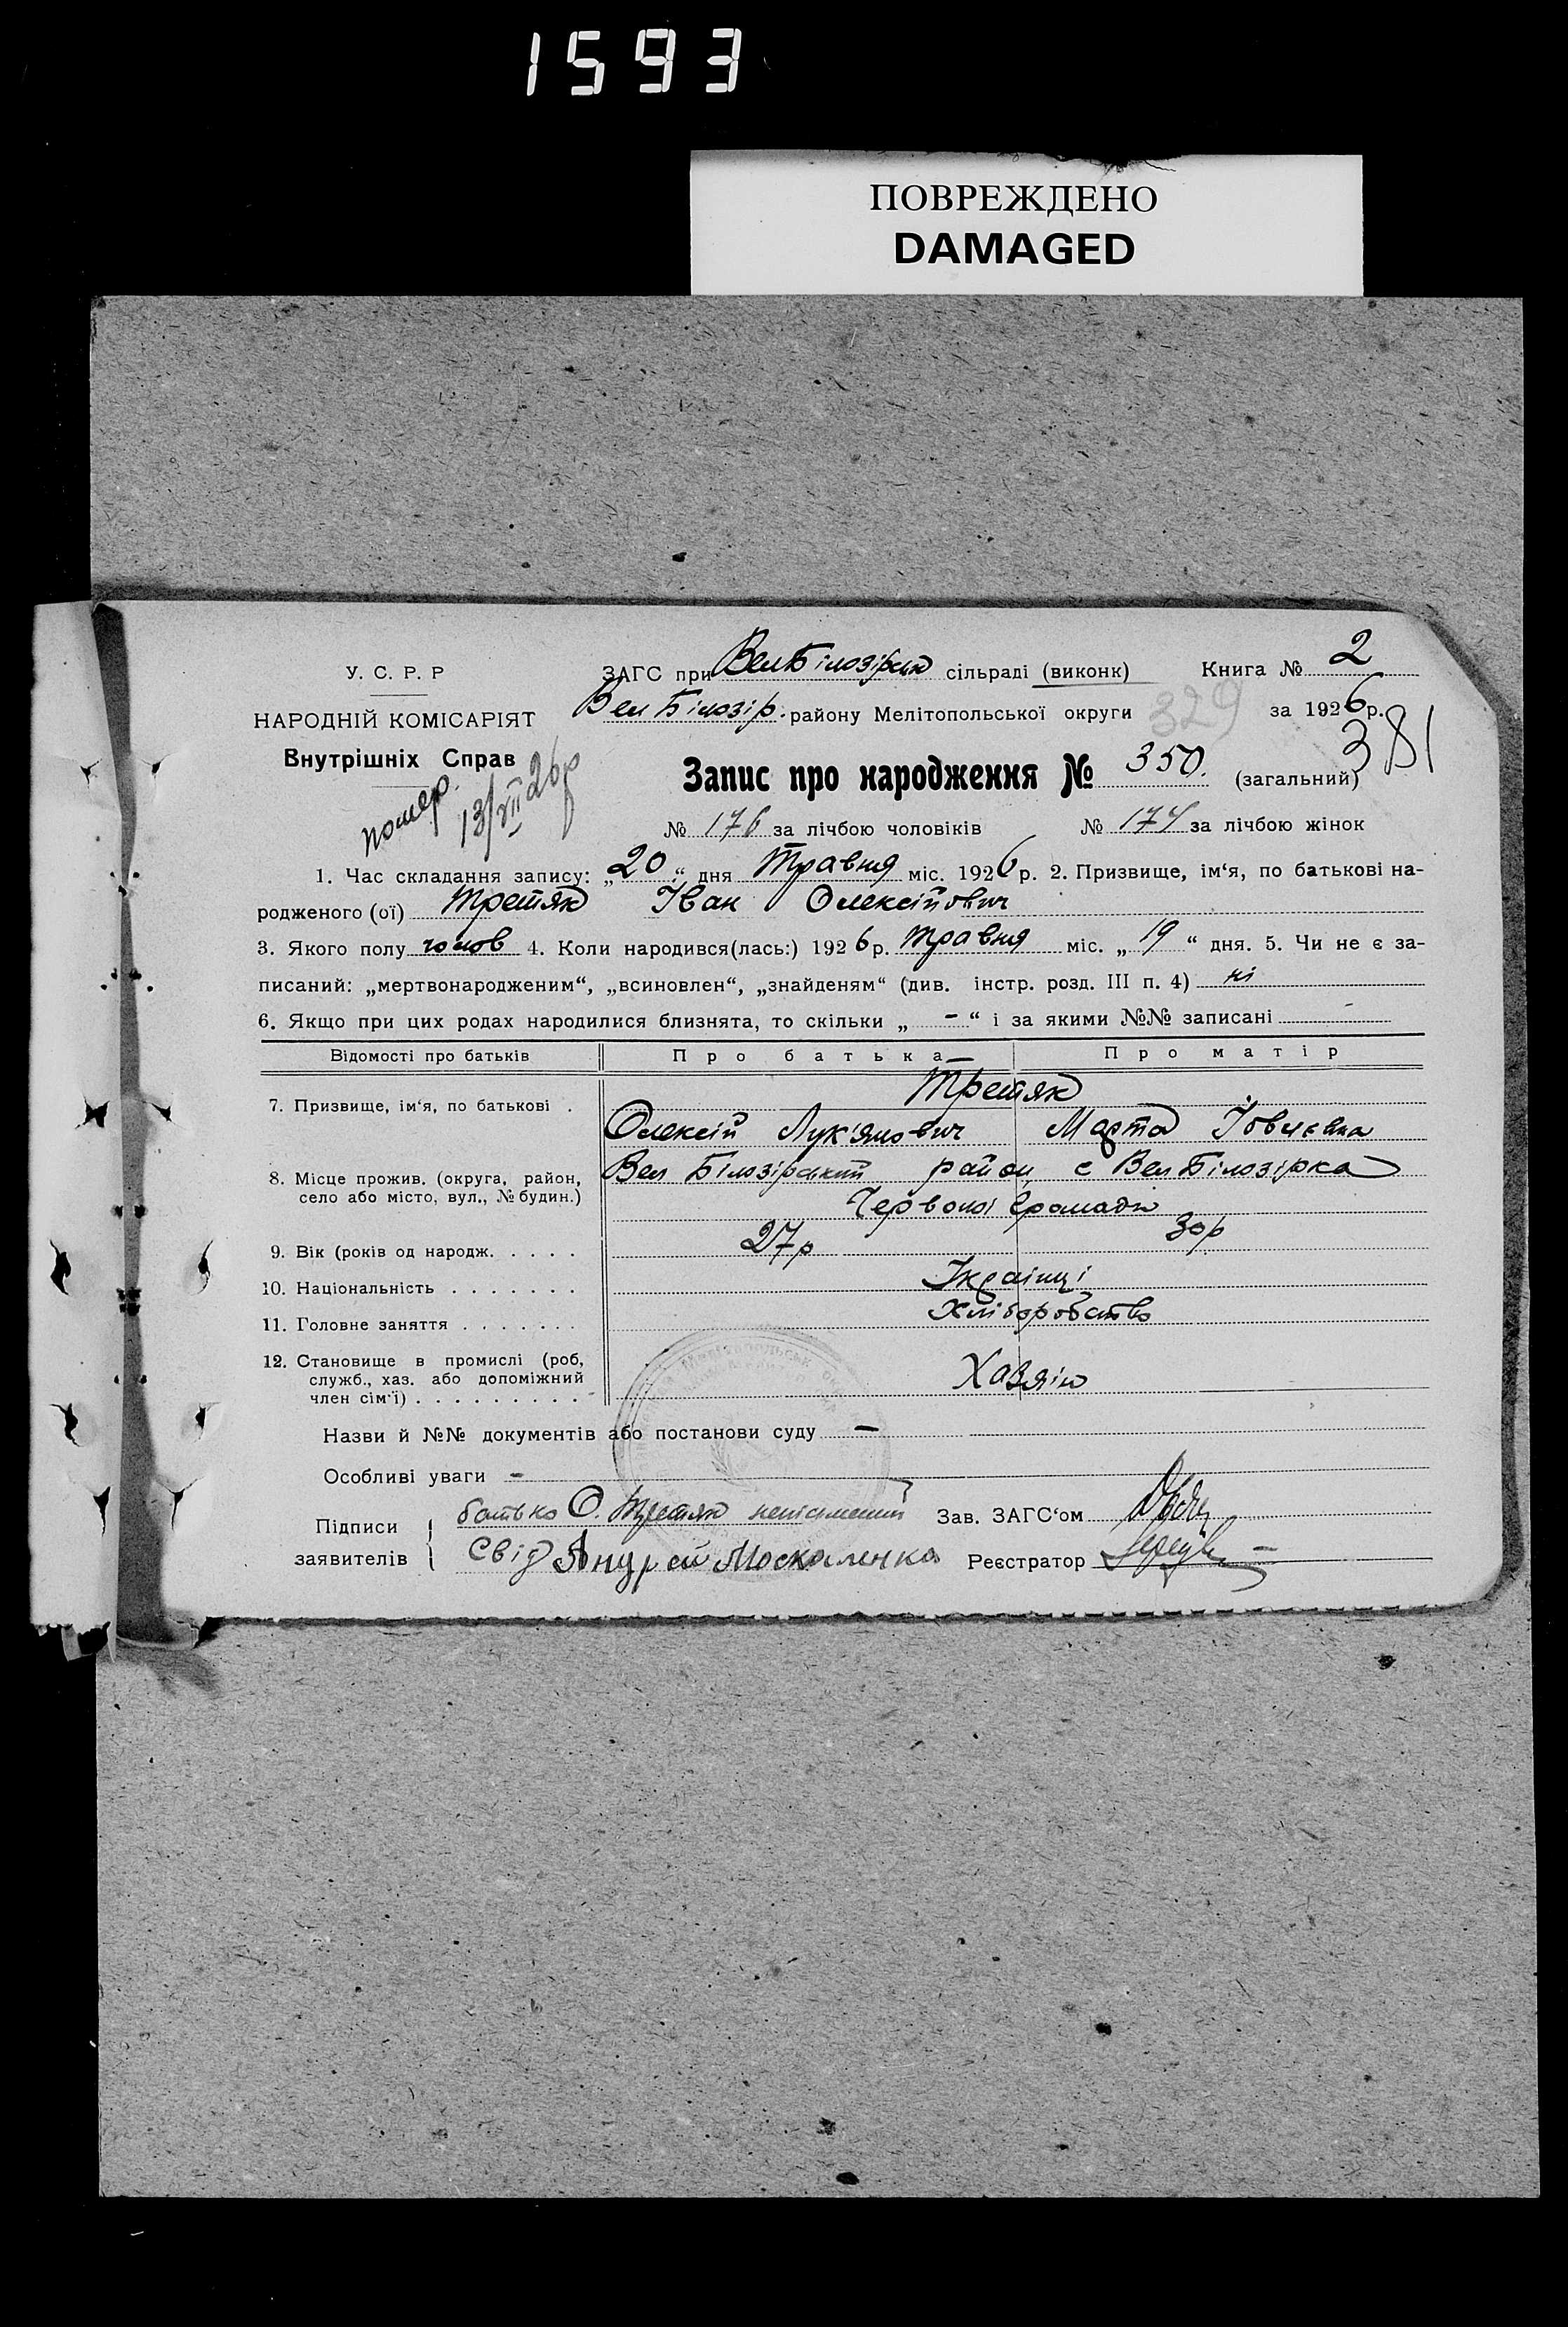 1593
ПОВРЕЖДЕНО
DAMAGED
У. С. Р. Р
НАРОДНІЙ КОМІСАРІЯТ
Внутрішніх Справ
помер. 13/VII 26р
ЗАГС при Вел Білозірськ сільраді (виконк) Книга № 2
Вел Білозір. району Мелітопольської округи 329 за 1926 р.
381
Запис про народження № 350. (загальний)
№ 176 за лічбою чоловіків № 174 за лічбою жінок
1. Час складання запису: „20“ дня Травня міс. 1926 р. 2. Призвище, ім‘я, по батькові на-
родженого (ої) Третяк Іван Олексійович
3. Якого полу чолов 4. Коли народився(лась:) 1926 р. травня міс. „19“ дня. 5. Чи не є за-
писаний: „мертвонародженим“, „всиновлен“, „знайденям“ (див. інстр. розд. III п. 4) ні
6. Якщо при цих родах народилися близнята, то скільки „ - “ і за якими №№ записані -
Відомості про батьків Про батька Про матір
7. Призвище, ім‘я, по батькові . Третяк
Олексій Лук'янович Марта
8. Місце прожив. (округа, район, село або місто, вул., № будин.) Вел Білозірський район, с Вел Білозірка
Червоної Громади
9. Вік (років од народж. . . . . 27р 30р
10. Національність . . . . . . . Українці
11. Головне заняття . . . . . . . Хліборобство
12. Становище в промислі (роб, служб., хаз. або допоміжний член сім‘ї) . . . . . . . . . . Хазяїн
Назви й №№ документів або постанови суду —
Особливі уваги -
Підписи заявителів { батько О. Третяк неписьмений Зав. ЗАГС‘ом
Свід Андрей Москаленко Реєстратор